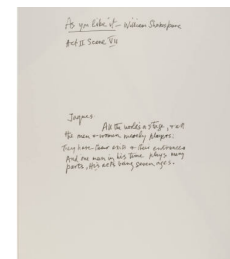 As you like it - William Shakespeare
Act II Scene VII
Jaques
All the worlds a stage, + all
the men + women merely players;
They have their exits + their entrances
And one man in his time plays many
parts, His acts being seven ages.